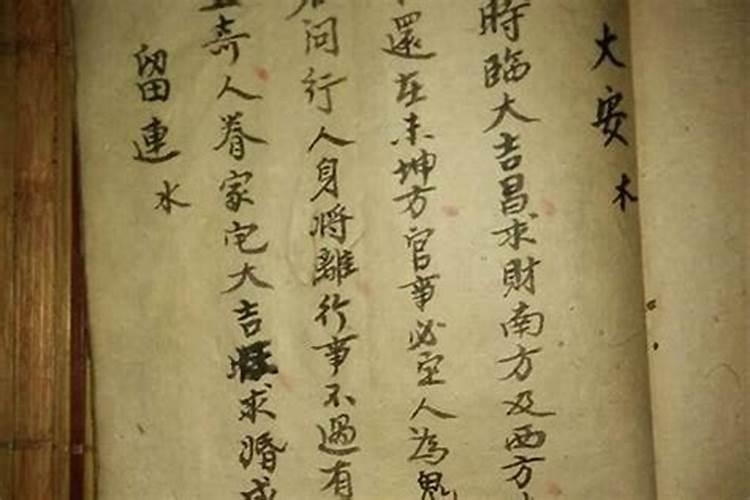 大安 木
時臨大吉昌求財南方及西方
還在未坤方官事必定人為鬼
問行人身將離行事不過有
奇人眷家宅大吉 求婚成
留連 水